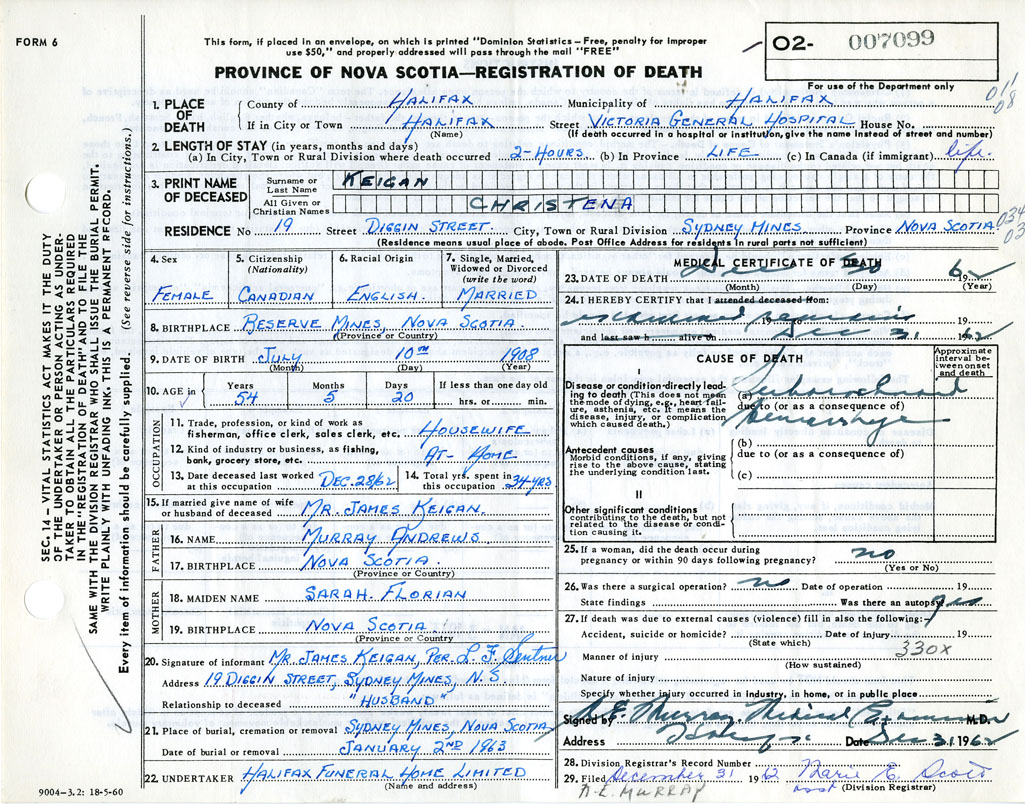 FORM 6
This form, if placed in an envelope, on which is printed "Dominion Statistics - Free, penalty for improper
use $50," and properly addressed will pass through the mail "FREE"
O2- 007099
For use of the Department only
PROVINCE OF NOVA SCOTIA—REGISTRATION OF DEATH
01/
08
1. PLACE OF DEATH
County of HALIFAX Municipality of HALIFAX
If in City or Town HALIFAX Street VICTORIA GENERAL HOSPITAL House No.
(Name) (If death occurred in a hospital or institution, give the name instead of street and number)
2. LENGTH OF STAY (in years, months and days)
(a) In City, Town or Rural Division where death occurred 2-HOURS (b) In Province LIFE (c) In Canada (if immigrant) life.
3. PRINT NAME OF DECEASED
Surname or Last Name KEIGAN
All Given or Christian Names CHRISTENA
RESIDENCE No 19 Street DIGGIN STREET City, Town or Rural Division SYDNEY MINES Province NOVA SCOTIA
034
03
(Residence means usual place of abode. Post Office Address for residents in rural parts not sufficient)
4. Sex
FEMALE
5. Citizenship
(Nationality)
CANADIAN
6. Racial Origin
ENGLISH.
7. Single, Married,
Widowed or Divorced
(write the word)
MARRIED
8. BIRTHPLACE RESERVE MINES, NOVA SCOTIA.
(Province or Country)
9. DATE OF BIRTH JULY 10TH 1908
(Month) (Day) (Year)
10. AGE in
Years Months Days If less than one day old
54 5 20 hrs. or min.
OCCUPATION
11. Trade, profession, or kind of work as
fisherman, office clerk, sales clerk, etc. HOUSEWIFE
12. Kind of industry or business, as fishing,
bank, grocery store, etc. AT-HOME
13. Date deceased last worked
at this occupation DEC. 28/62
14. Total yrs. spent in
this occupation 34 YRS.
15. If married give name of wife
or husband of deceased MR. JAMES KEIGAN.
FATHER
16. NAME MURRAY ANDREWS
17. BIRTHPLACE NOVA SCOTIA
(Province or Country)
MOTHER
18. MAIDEN NAME SARAH. FLORIAN
19. BIRTHPLACE NOVA SCOTIA
(Province or Country
20. Signature of informant MR. JAMES KEIGAN, PER L. F. Sentner
Address 19 DIGGIN STREET, SYDNEY MINES, N.S.
Relationship to deceased "HUSBAND"
21. Place of burial, cremation or removal SYDNEY MINES, NOVA SCOTIA
Date of burial or removal JANUARY 2ND 1963
22. UNDERTAKER HALIFAX FUNERAL HOME LIMITED
(Name and address)
9004-3.2: 18-5-60
MEDICAL CERTIFICATE OF DEATH
23. DATE OF DEATH Dec 30 1962
(Month) (Day) (Year)
24. I HEREBY CERTIFY that I attended deceased from:
examined remains 19 to 19
and last saw h alive on Dec 31 1962
CAUSE OF DEATH
Approximate
interval be-
tween onset
and death
I
Disease or condition directly lead-
ing to death (This does not mean
the mode of dying, e.g., heart fail-
ure, asthenia, etc. It means the
disease, injury, or complication
which caused death.)
(a) Subarachnoid
due to (or as a consequence of)
hemorrhage
(b)
due to (or as a consequence of)
(c)
Antecedent causes
Morbid conditions, if any, giving
rise to the above cause, stating
the underlying condition last.
II
Other significant conditions
contributing to the death, but not
related to the disease or condi-
tion causing it.
25. If a woman, did the death occur during
pregnancy or within 90 days following pregnancy? no
(Yes or No)
26. Was there a surgical operation? no Date of operation 19
State findings Was there an autopsy yes
27. If death was due to external causes (violence) fill in also the following:
Accident, suicide or homicide? Date of injury 19
(State which)
330X
Manner of injury
(How sustained)
Nature of injury
Specify whether injury occurred in industry, in home, or in public place
Signed by A.E. Murray. Medical Examiner M.D.
Address Date Dec 31 1962
28. Division Registrar's Record Number
29. Filed December 31 1962 Marie E. Scott
A.E. MURRAY asst (Division Registrar)
SEC. 14 - VITAL STATISTICS ACT MAKES IT THE DUTY
OF THE UNDERTAKER OR PERSON ACTING AS UNDER-
TAKER TO OBTAIN ALL THE PARTICULARS REQUIRED
IN THE "REGISTRATION OF DEATH" AND TO FILE THE
SAME WITH THE DIVISION REGISTRAR WHO SHALL ISSUE THE BURIAL PERMIT.
WRITE PLAINLY WITH UNFADING INK. THIS IS A PERMANENT RECORD.
Every item of information should be carefully supplied. (See reverse side for instructions.)